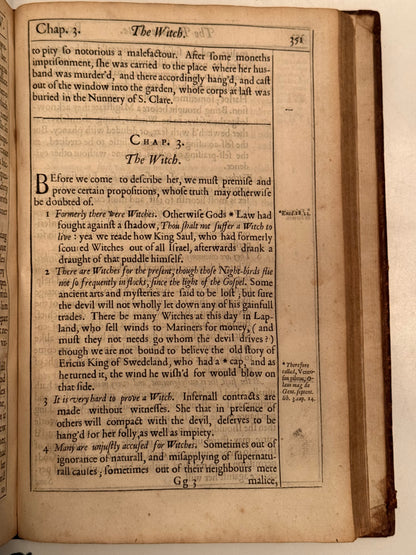 Chap. 3. The Witch. 351
to pity so notorious a malefactour. After some moneths
imprisonment, she was carried to the place where her hus-
band was murder'd, and there accordingly hang'd, and cast
out of the window into the garden, whose corps at last was
buried in the Nunnery of S. Clare.
CHAP. 3.
The Witch.
BEfore we come to describe her, we must premise and
prove certain propositions, whose truth may otherwise
be doubted of.
1 Formerly there were Witches. Otherwise Gods * Law had
fought against a shadow, Thou shalt not suffer a Witch to
live: yea we reade how King Saul, who had formerly
scoured Witches out of all Israel, afterwards drank a
draught of that puddle himself.
2 There are Witches for the present, though those Night-birds flie
not so frequently in flocks, since the light of the Gospel. Some
ancient arts and mysteries are said to be lost; but sure
the devil will not wholly let down any of his gainfull
trades. There be many Witches at this day in Lap-
land, who sell winds to Mariners for money, (and
must they not needs go whom the devil drives?)
though we are not bound to believe the old story of
Ericus King of Swedeland, who had a * cap, and as
he turned it, the wind he wish'd for would blow on
that side.
3 It is very hard to prove a Witch. Infernall contracts are
made without witnesses. She that in presence of
others will compact with the devil, deserves to be
hang'd for her folly, as well as impiety.
4 Many are unjustly accused for Witches. Sometimes out of
ignorance of naturall, and misapplying of supernatu-
rall causes; sometimes out of their neighbours mere
Gg 3 malice,
* Therefore
called, Vento-
sum pileum, O-
laus mag. de
Gent. septent.
lib. 3. cap. 14.